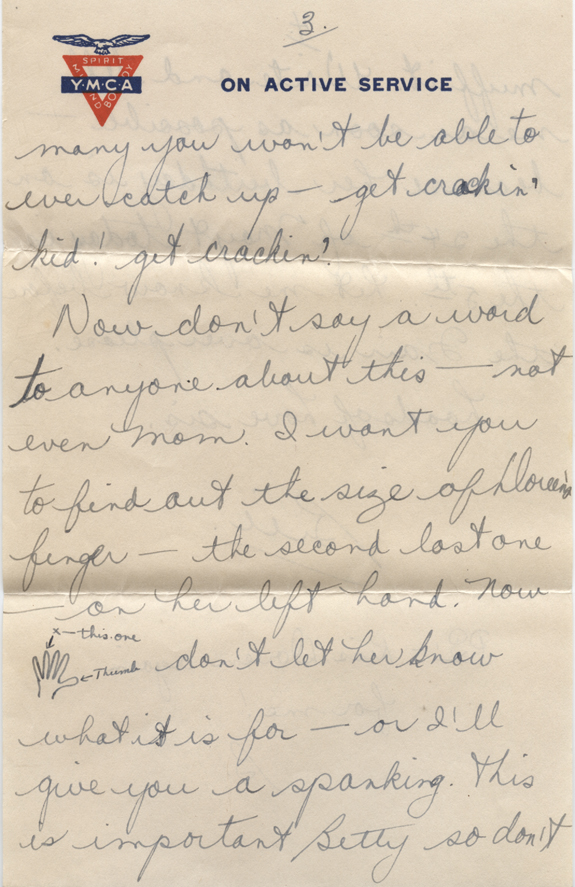 3.
SPIRIT
MIND
BODY
Y·M·C·A
ON ACTIVE SERVICE
many you won't be able to
ever catch up — get crackin'
kid! get crackin'!
Now don't say a word
to anyone about this — not
even Mom. I want you
to find out the size of Doreen's
finger — the second last one
— on her left hand. Now
x — this one
← Thumb
don't let her know
what it is for — or I'll
give you a spanking. This
is important Betty so don't